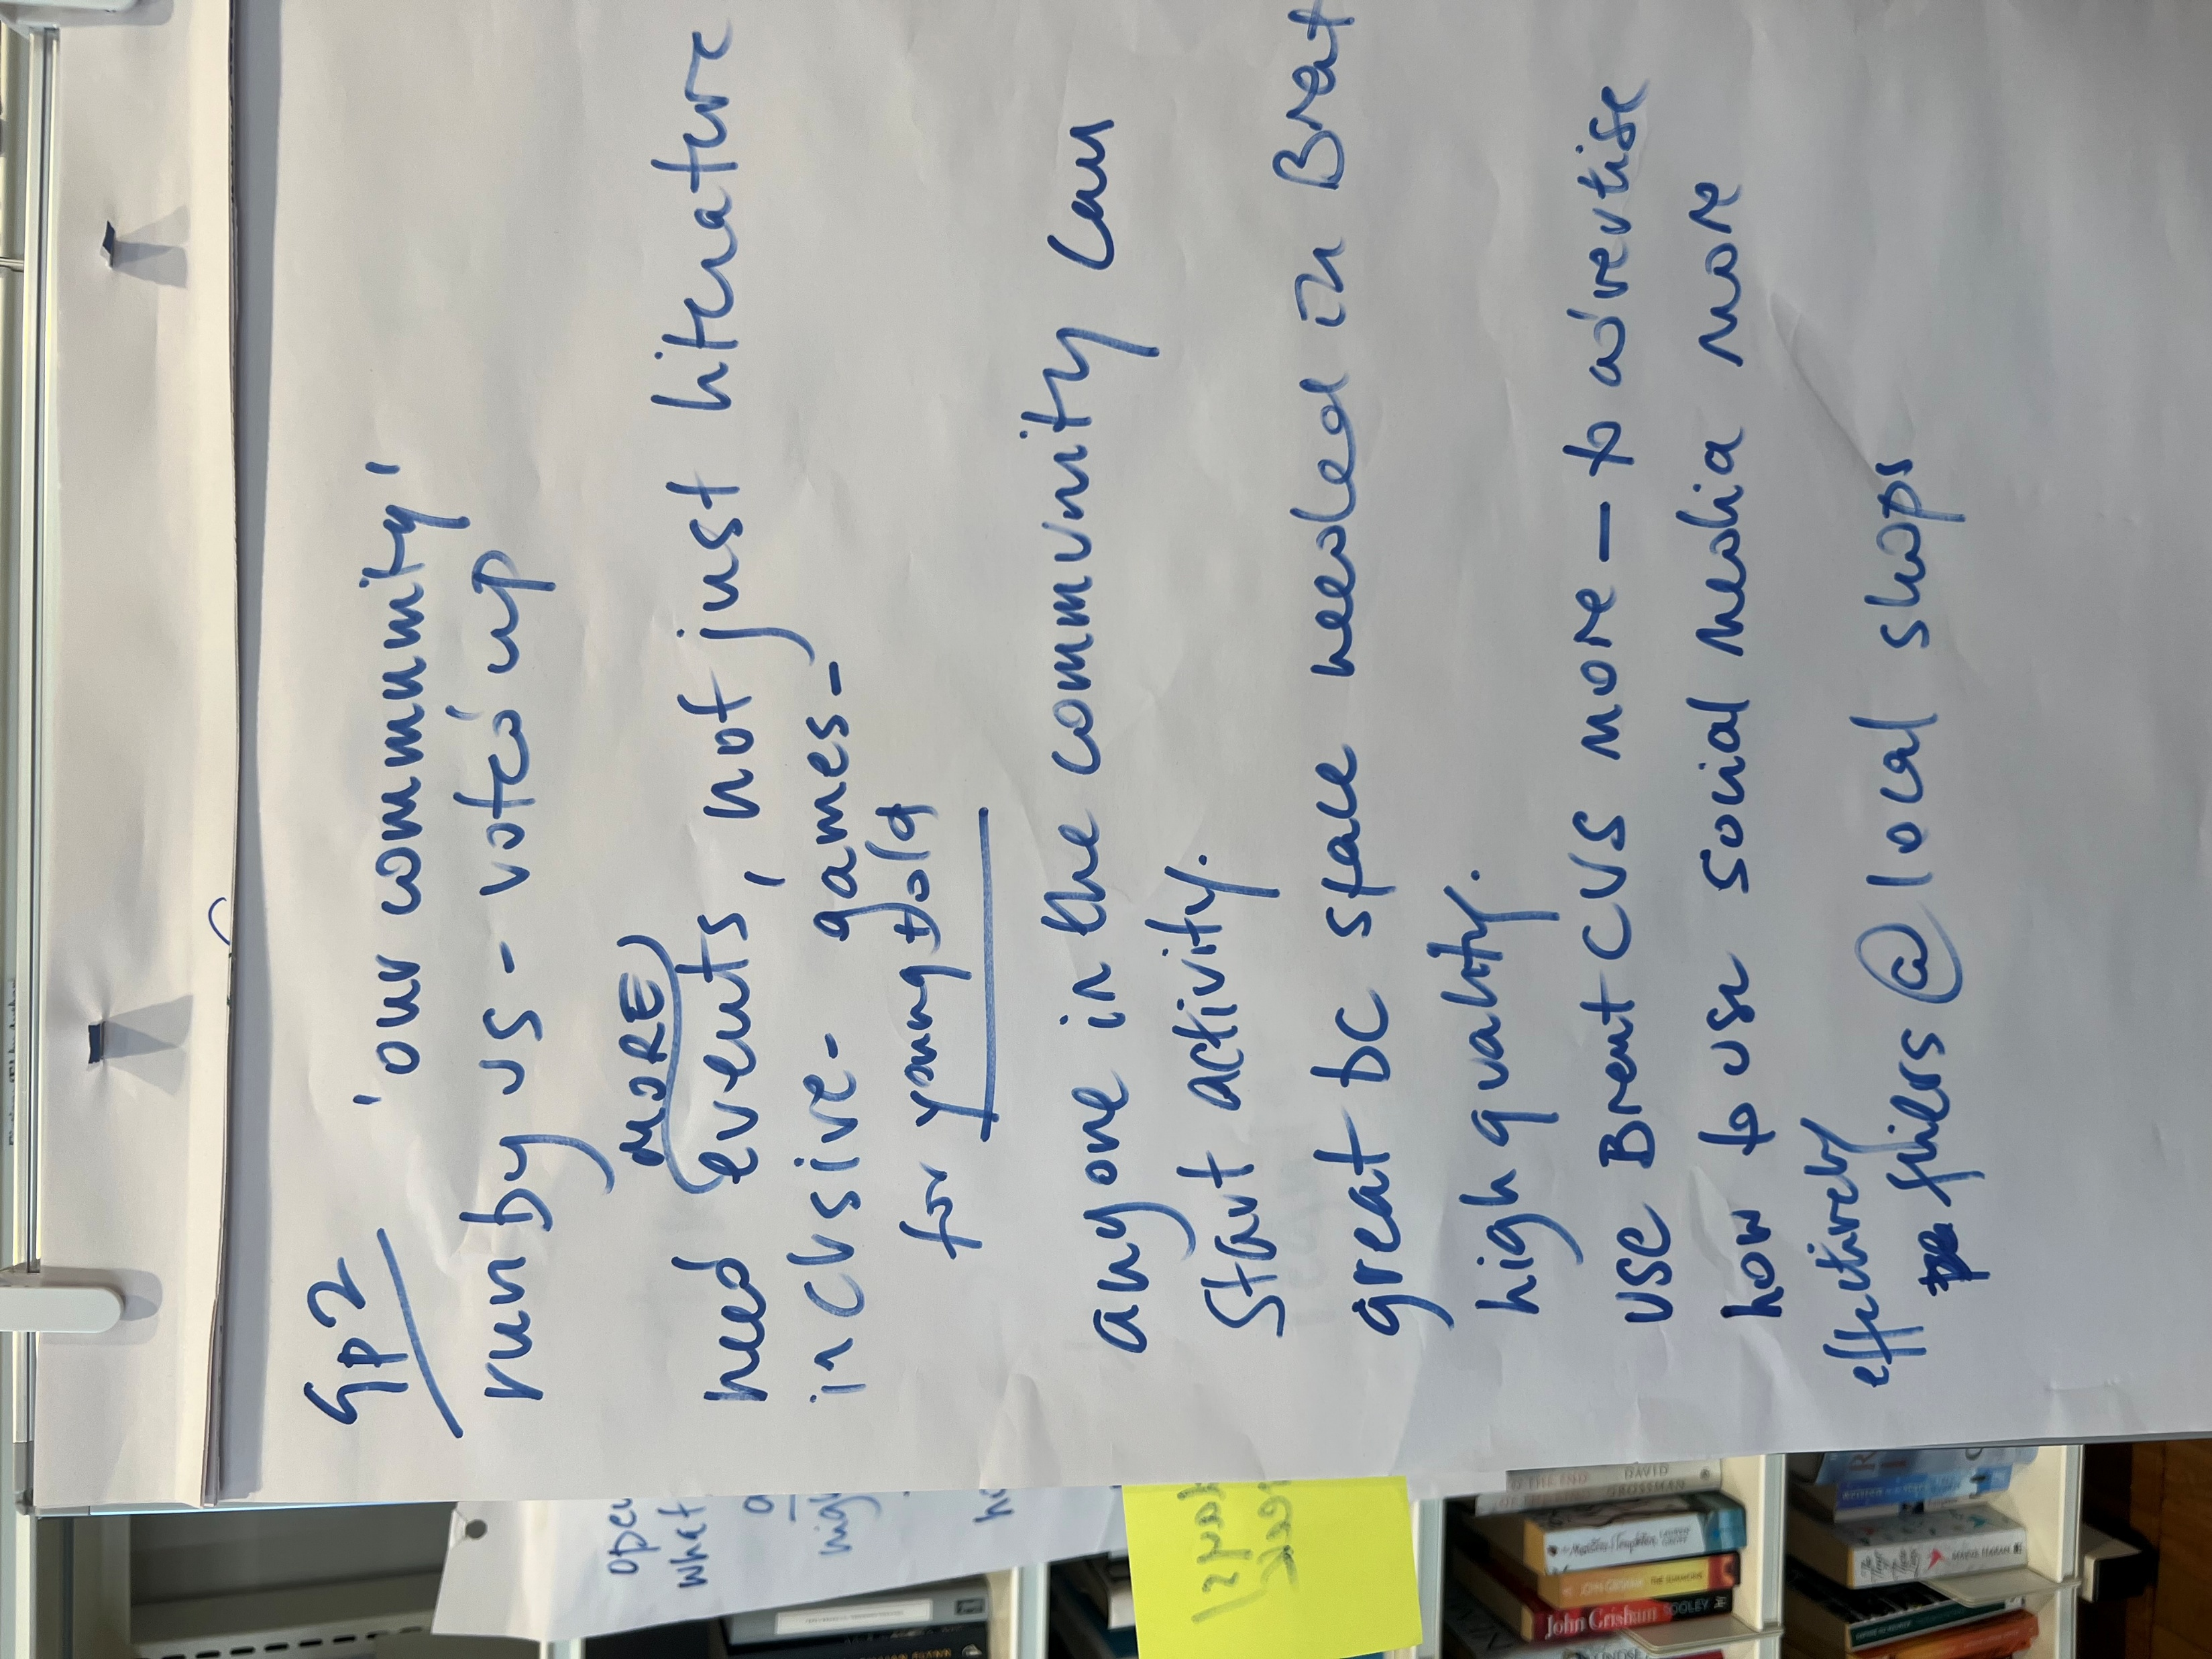 Gp2
'our community'
run by us - voted up
MORE
need events, not just literature
inclusive - games -
for young & old
anyone in the community can
start activity.
great bc space needed in Brent
high quality.
use Brent CVS more - to advertise
how to use social media more
effectively
fliers @ local shops
open
what
John Grisham
DAVID
GROSSMAN
JOHN GRISHAM